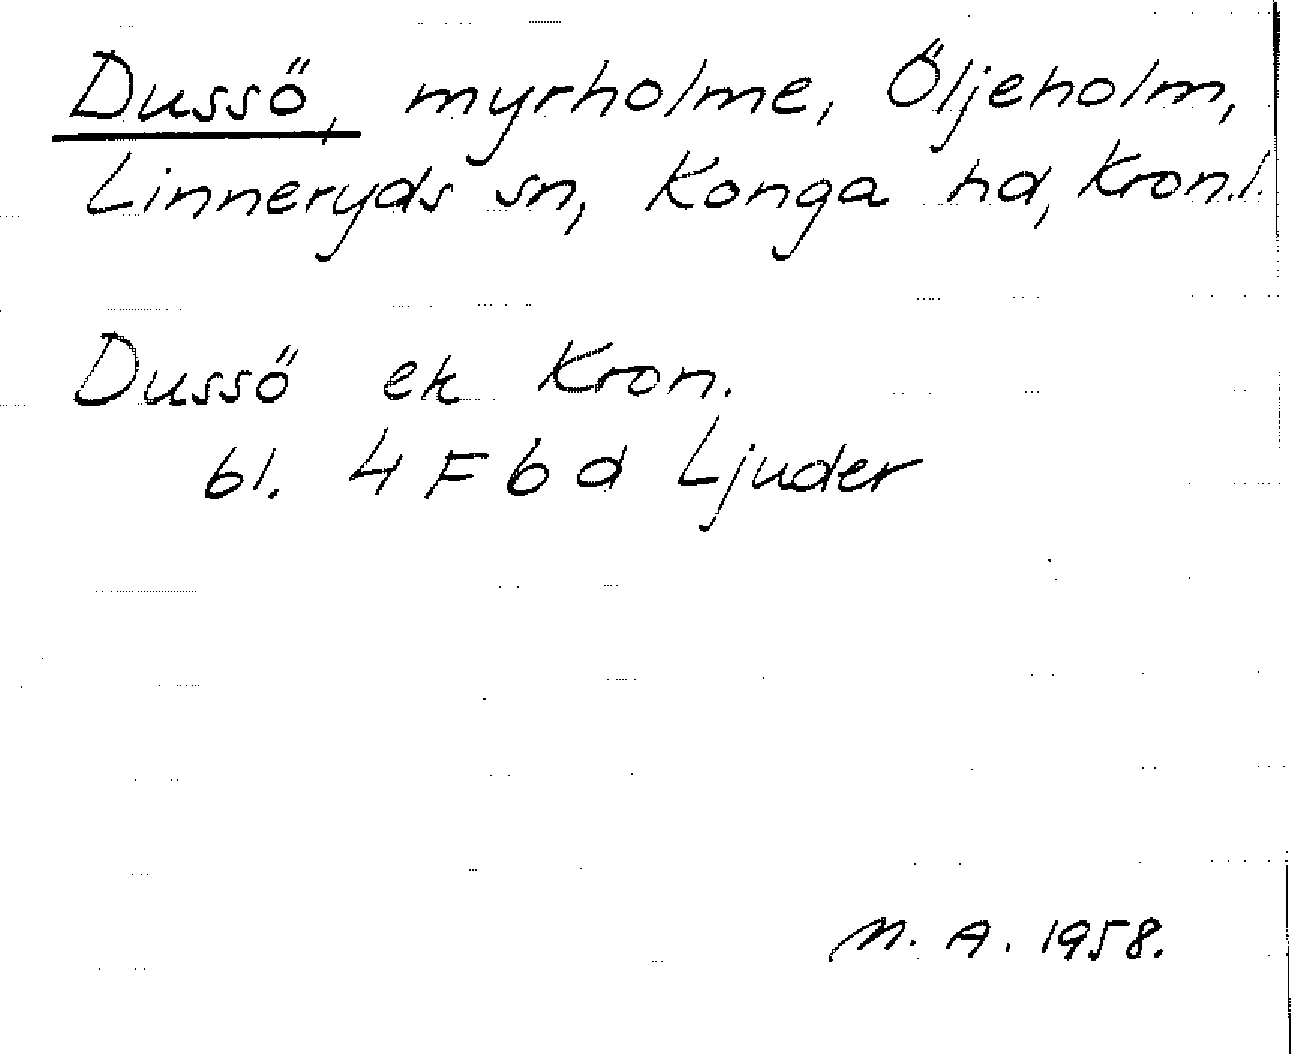 Dussö, myrholme, Öljeholm,
Linneryds sn, Konga hd, Kron.l.
Dussö ek Kron.
bl. 4 F 6 d Ljuder
M. A. 1958.